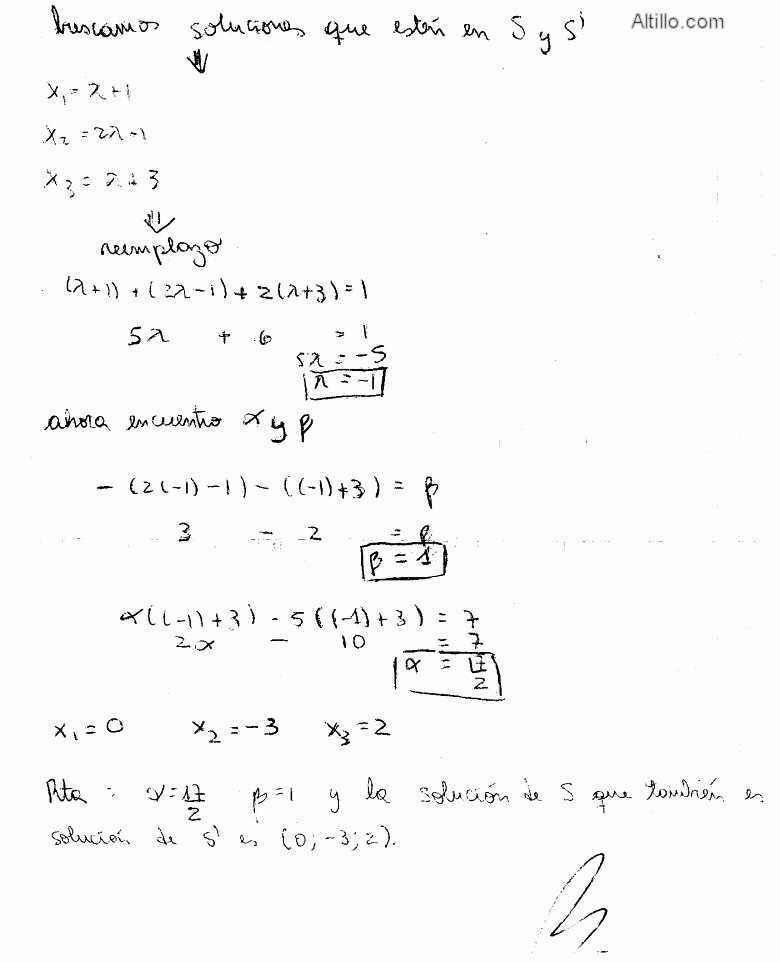 buscamos soluciones que estén en S y S' Altillo.com
⇓
x₁ = λ+1
x₂ = 2λ-1
x₃ = λ + 3
⇓
reemplazo
(λ+1) + (2λ-1) + 2(λ+3) = 1
5λ + 6 = 1
5λ = -5
λ = -1
ahora encuentro α y β
- (2(-1) - 1) - ((-1)+3) = β
3 - 2 = β
β = 1
α((-1)+3) - 5((-1)+3) = 7
2α - 10 = 7
α = 17/2
x₁ = 0 x₂ = -3 x₃ = 2
Rta : α = 17/2 β = 1 y la solución de S que también es
solución de S' es (0; -3; 2).